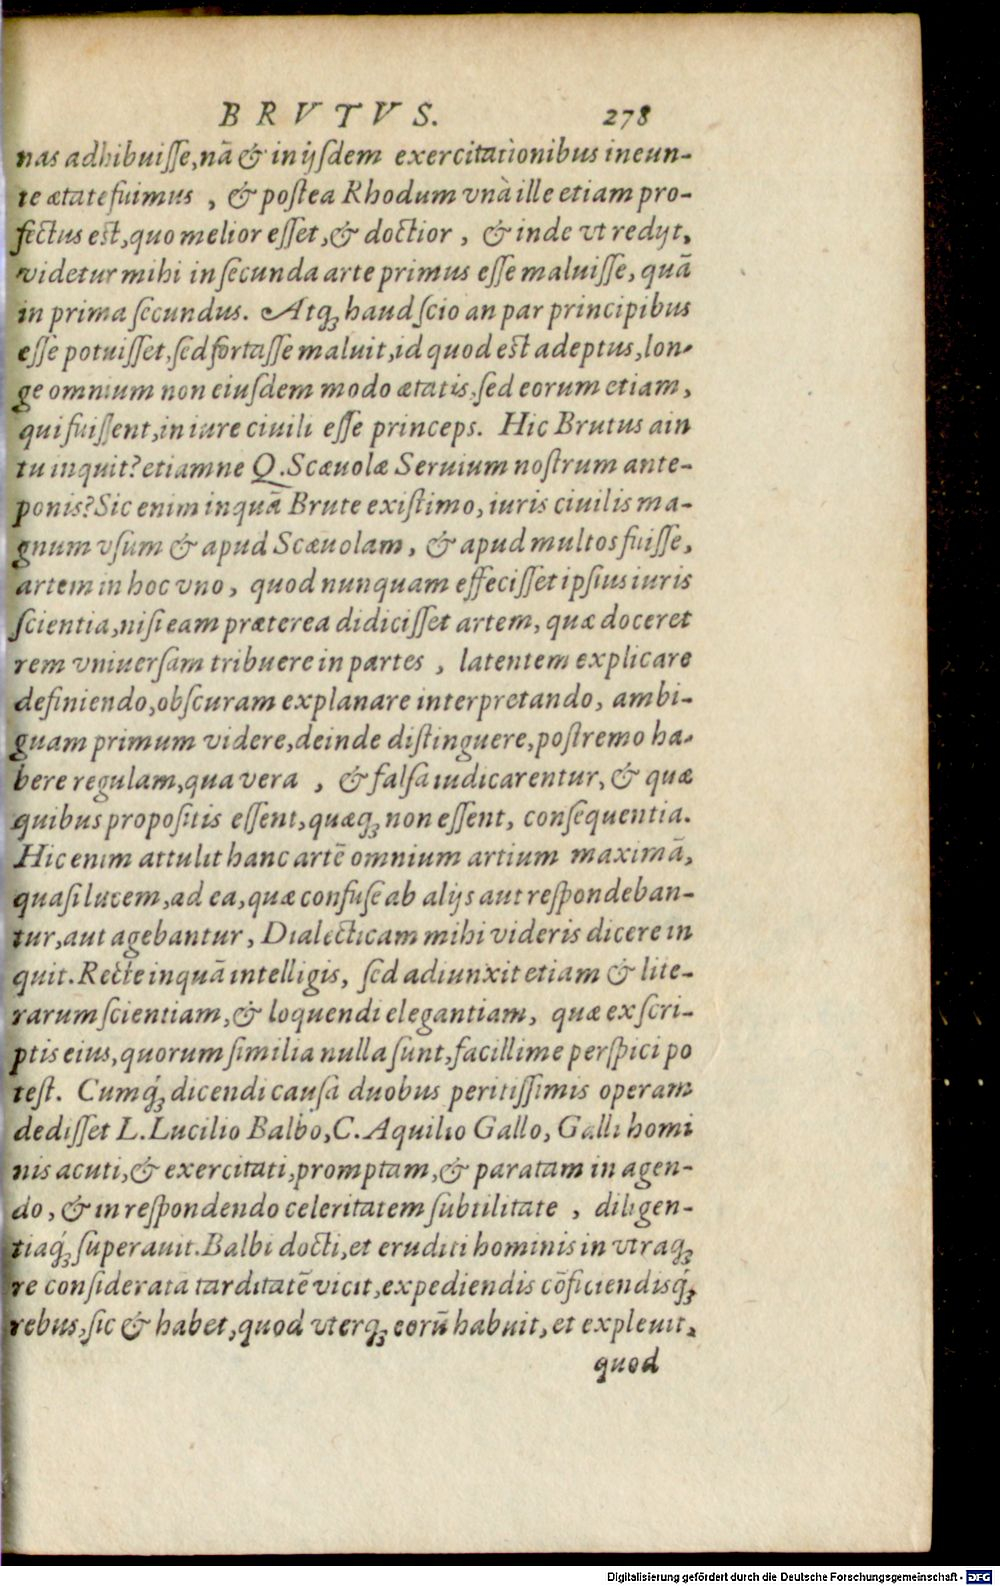 BRVTVS. 278
nas adhibuiſſe, nā & in ijſdem exercitationibus ineun-
te ætate fuimus, & poſtea Rhodum vnà ille etiam pro-
fectus eſt, quo melior eſſet, & doctior, & inde vt redijt,
videtur mihi in ſecunda arte primus eſſe maluiſſe, quā
in prima ſecundus. Atqꝫ haud ſcio an par principibus
eſſe potuiſſet, ſed fortaſſe maluit, id quod eſt adeptus, lon-
ge omnium non eiuſdem modo ætatis, ſed eorum etiam,
qui fuiſſent, in iure ciuili eſſe princeps. Hic Brutus ain
tu inquit? etiamne Q. Scæuolæ Seruium noſtrum ante-
ponis? Sic enim inquā Brute exiſtimo, iuris ciuilis ma-
gnum vſum & apud Scæuolam, & apud multos fuiſſe,
artem in hoc vno, quod nunquam effeciſſet ipſius iuris
ſcientia, niſi eam præterea didiciſſet artem, quæ doceret
rem vniuerſam tribuere in partes, latentem explicare
definiendo, obſcuram explanare interpretando, ambi-
guam primum videre, deinde diſtinguere, poſtremo ha-
bere regulam, qua vera, & falſa iudicarentur, & quæ
quibus propoſitis eſſent, quæqꝫ non eſſent, conſequentia.
Hic enim attulit hanc artē omnium artium maximā,
quaſi lucem, ad ea, quæ confuſe ab alijs aut reſpondeban-
tur, aut agebantur, Dialecticam mihi videris dicere in
quit. Recte inquā intelligis, ſed adiunxit etiam & lite-
rarum ſcientiam, & loquendi elegantiam, quæ ex ſcri-
ptis eius, quorum ſimilia nulla ſunt, facillime perſpici po
teſt. Cumqꝫ́ dicendi cauſa duobus peritiſſimis operam
dediſſet L. Lucilio Balbo, C. Aquilio Gallo, Galli homi
nis acuti, & exercitati, promptam, & paratam in agen-
do, & in reſpondendo celeritatem ſubtilitate, diligen-
tiaqꝫ́ ſuperauit. Balbi docti, et eruditi hominis in vtraqꝫ
re conſideratā tarditatē vicit, expediendis cōficiendisqꝫ́
rebus, ſic & habet, quod vterqꝫ eorū habuit, et expleuit,
quod
Digitalisierung gefördert durch die Deutsche Forschungsgemeinschaft - DFG